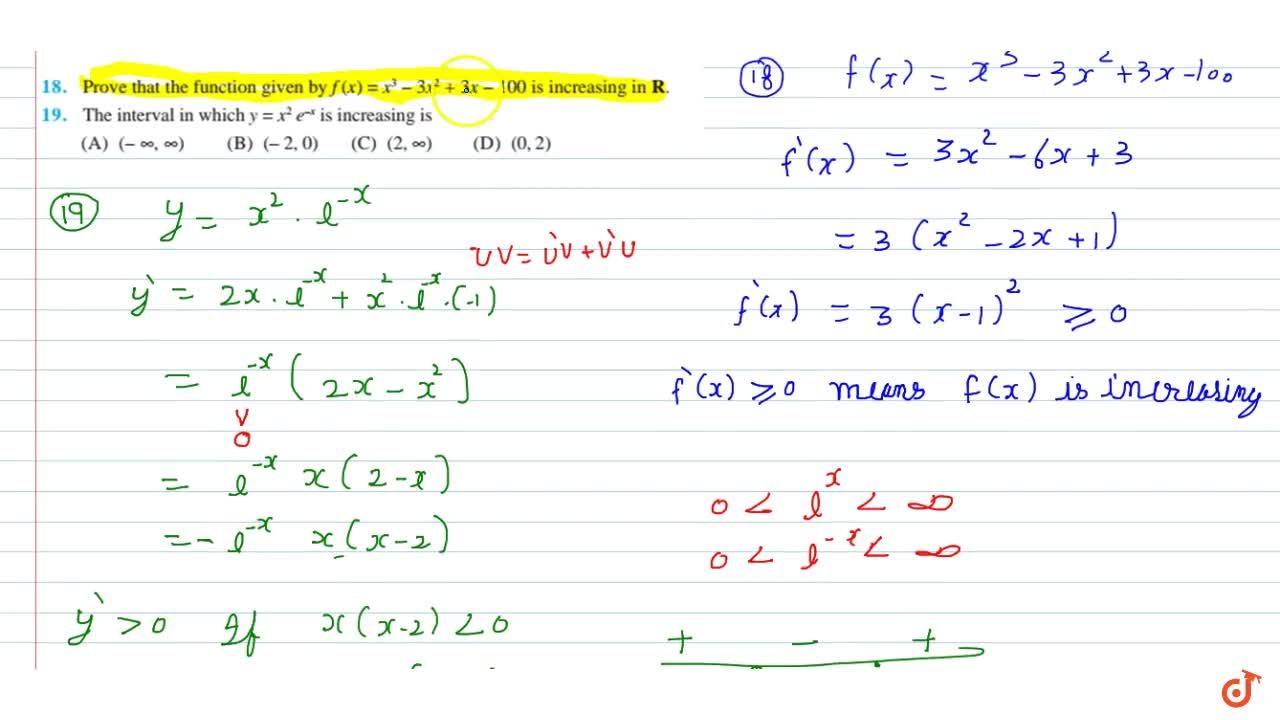 18. Prove that the function given by f(x) = x³ – 3x² + 3x – 100 is increasing in R.
19. The interval in which y = x² e⁻ˣ is increasing is
(A) (– ∞, ∞) (B) (– 2, 0) (C) (2, ∞) (D) (0, 2)
(19) y = x² · e⁻ˣ
UV = U`V + V`U
y` = 2x · e⁻ˣ + x² · e⁻ˣ · (-1)
= e⁻ˣ (2x - x²)
V
0
= e⁻ˣ x(2-x)
= - e⁻ˣ x(x-2)
y` > 0 If x(x-2) < 0
(18) f(x) = x³ - 3x² + 3x - 100
f`(x) = 3x² - 6x + 3
= 3 (x² - 2x + 1)
f`(x) = 3 (x-1)² ⩾ 0
f`(x) ⩾ 0 means f(x) is increasing
0 < eˣ < ∞
0 < e⁻ˣ < ∞
+ - +